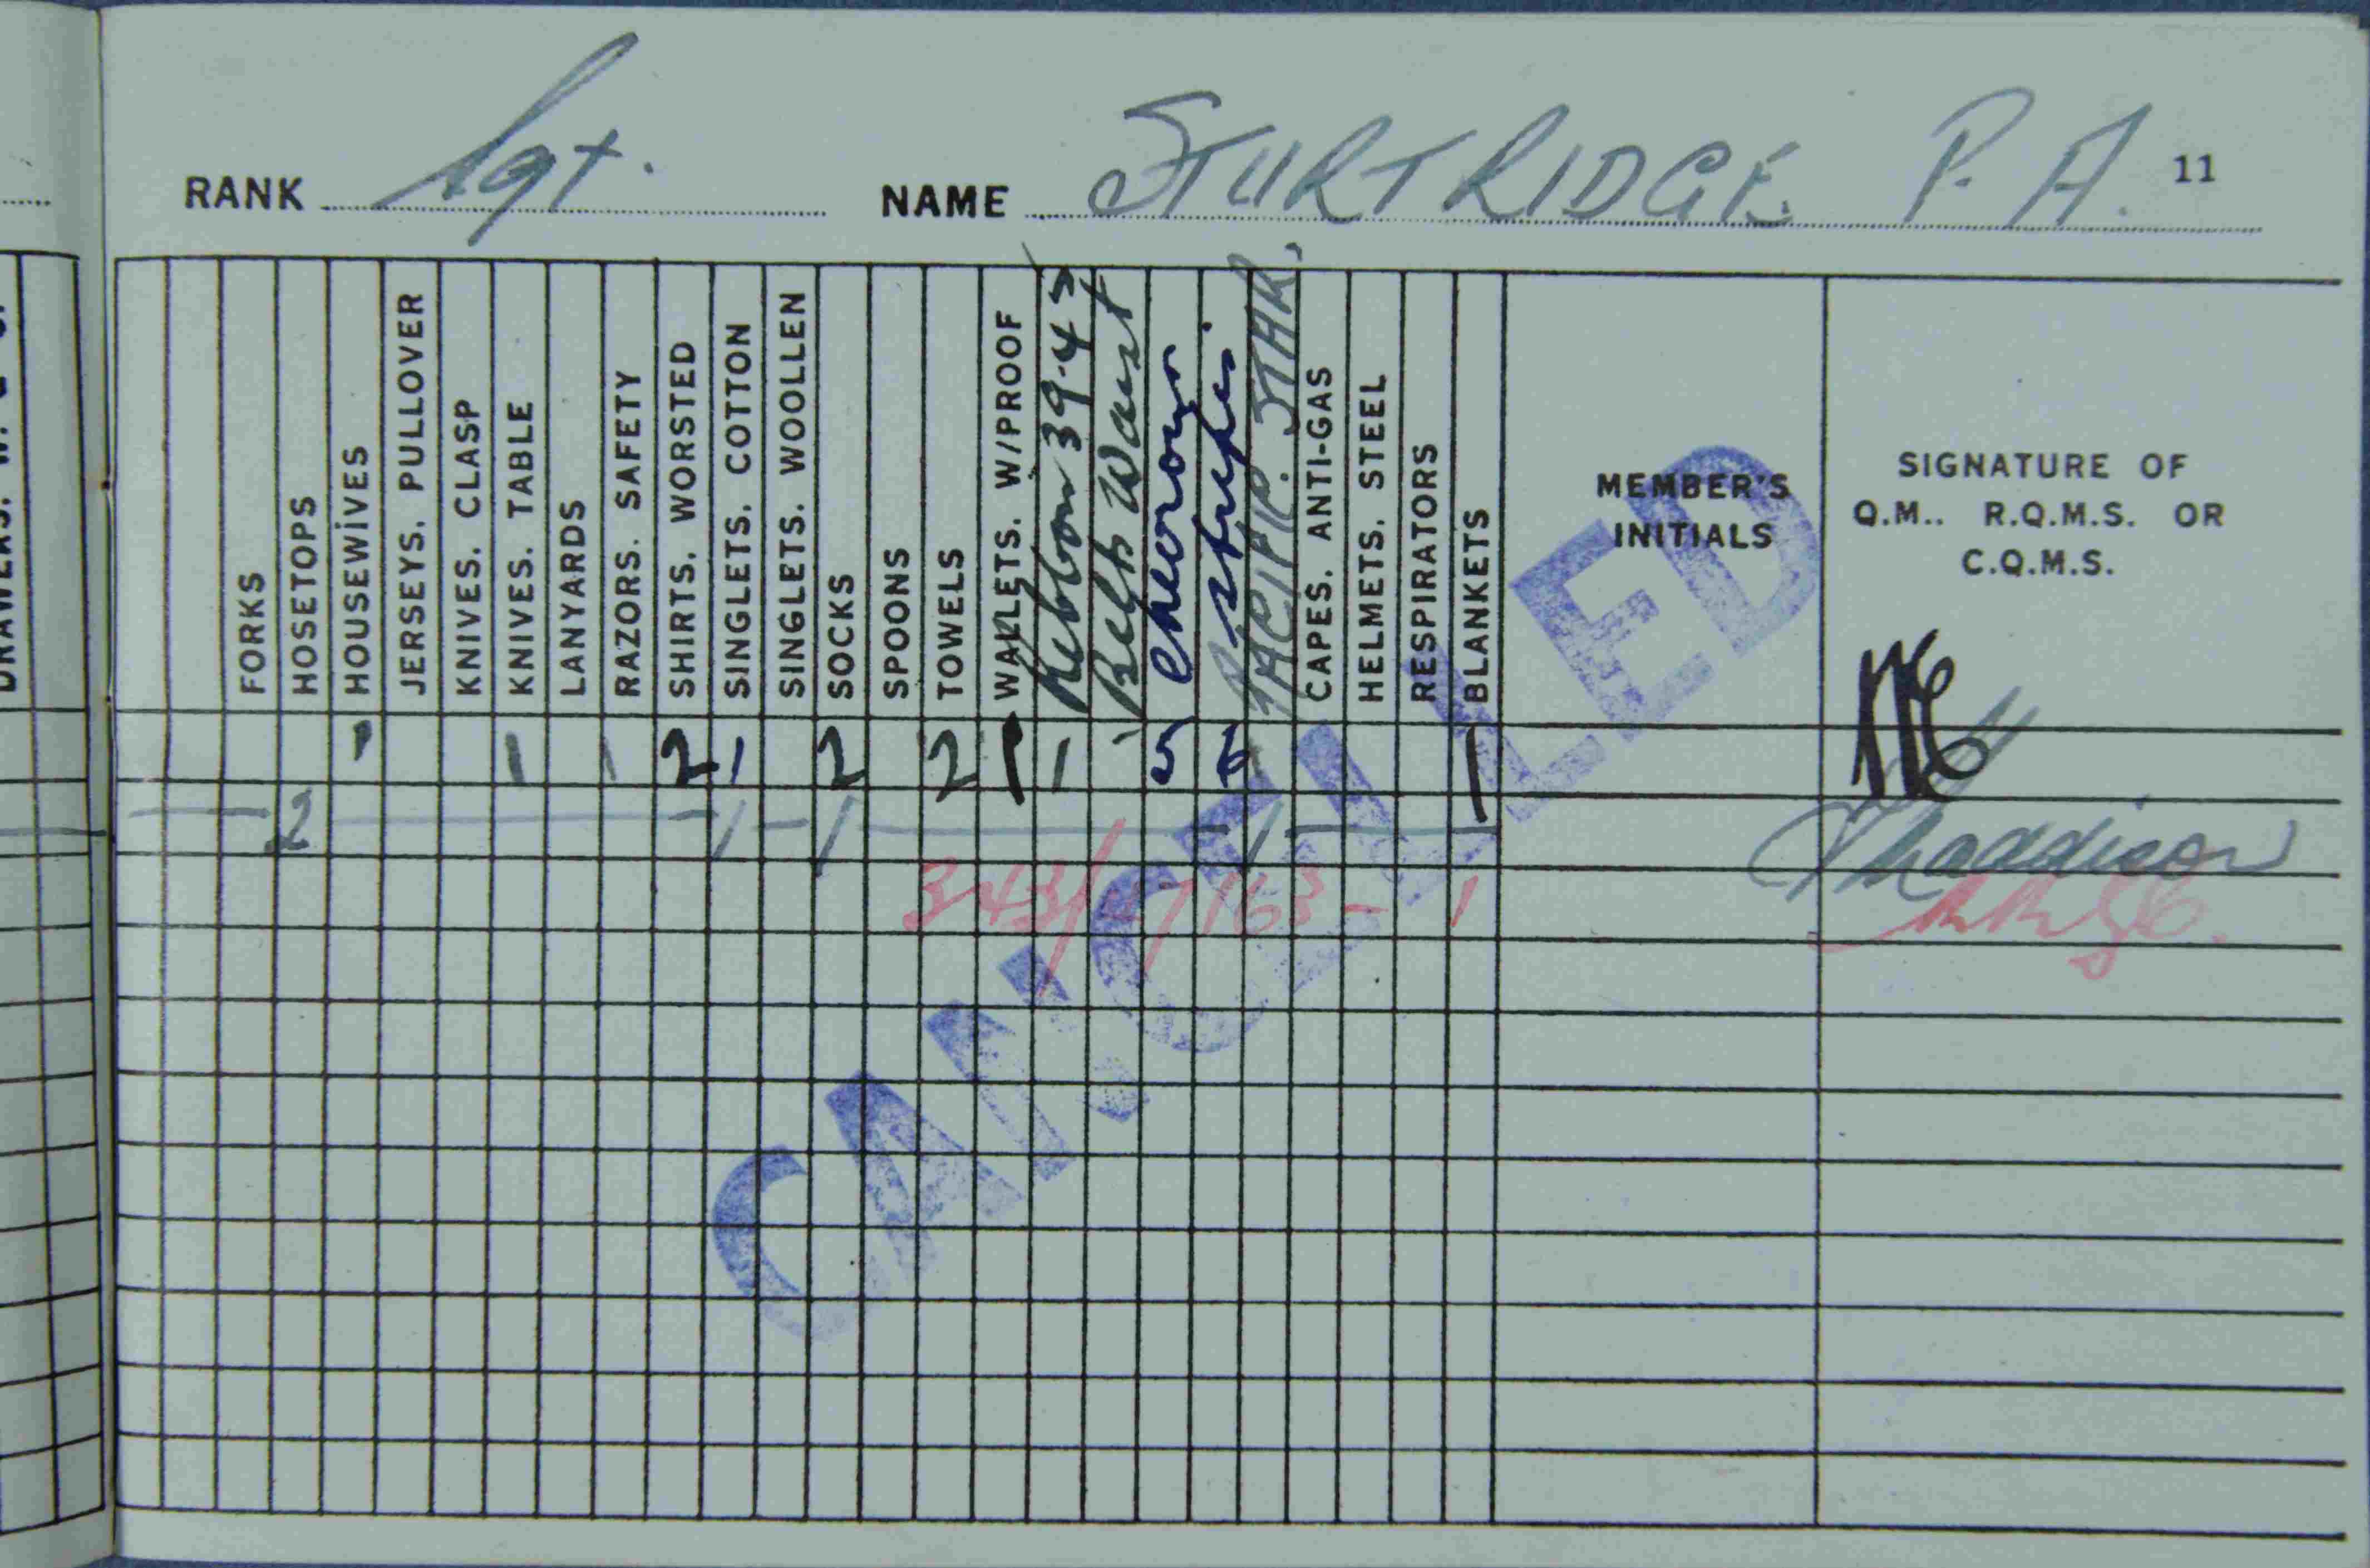 11
RANK Sgt. NAME STURTRIDGE. P. A.
FORKS
HOSETOPS
HOUSEWIVES
JERSEYS, PULLOVER
KNIVES, CLASP
KNIVES, TABLE
LANYARDS
RAZORS, SAFETY
SHIRTS, WORSTED
SINGLETS, COTTON
SINGLETS, WOOLLEN
SOCKS
SPOONS
TOWELS
WALLETS, W/PROOF
Ribbon 39-43
Belts Waist
Chevrons
Stripes
PACIFIC STAR
CAPES, ANTI-GAS
HELMETS, STEEL
RESPIRATORS
BLANKETS
MEMBER'S
INITIALS
SIGNATURE OF
Q.M., R.Q.M.S. OR
C.Q.M.S.
1 1 1 2 1 2 2 1 1 1 5 1
2 1 1 1 Maddison
343/ 163 - 1
CANCELLED